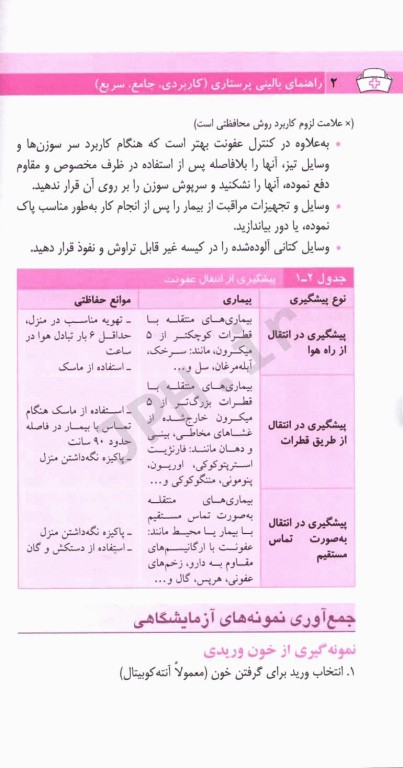 ۲ راهنمای بالینی پرستاری (کاربردی، جامع، سریع)
(× علامت لزوم کاربرد روش محافظتی است)
• به‌علاوه در کنترل عفونت بهتر است که هنگام کاربرد سر سوزن‌ها و
وسایل تیز، آنها را بلافاصله پس از استفاده در ظرف مخصوص و مقاوم
دفع نموده، آنها را نشکنید و سرپوش سوزن را بر روی آن قرار ندهید.
• وسایل و تجهیزات مراقبت از بیمار را پس از انجام کار به‌طور مناسب پاک
نموده، یا دور بیاندازید.
• وسایل کتانی آلوده‌شده را در کیسه غیر قابل تراوش و نفوذ قرار دهید.
جدول ۲-۱ پیشگیری از انتقال عفونت
نوع پیشگیری بیماری موانع حفاظتی
پیشگیری در انتقال
از راه هوا
بیماری‌های منتقله با
قطرات کوچکتر از ۵
میکرون، مانند: سرخک،
آبله‌مرغان، سل و...
ـ تهویه مناسب در منزل،
حداقل ۶ بار تبادل هوا در
ساعت
ـ استفاده از ماسک
پیشگیری در انتقال
از طریق قطرات
بیماری‌های منتقله با
قطرات بزرگ‌تر از ۵
میکرون خارج‌شده از
غشاهای مخاطی، بینی
و دهان مانند: فارنژیت
استرپتوکوکی، اوریون،
پنومونی، مننگوکوکی و...
ـ استفاده از ماسک هنگام
تماس با بیمار در فاصله
حدود ۹۰ سانت
ـ پاکیزه نگه‌داشتن منزل
پیشگیری در انتقال
به‌صورت تماس
مستقیم
بیماری‌های منتقله
به‌صورت تماس مستقیم
با بیمار یا محیط مانند:
عفونت با ارگانیسم‌های
مقاوم به دارو، زخم‌های
عفونی، هرپس، گال و...
ـ پاکیزه نگه‌داشتن منزل
ـ استفاده از دستکش و گان
جمع‌آوری نمونه‌های آزمایشگاهی
نمونه‌گیری از خون وریدی
۱. انتخاب ورید برای گرفتن خون (معمولاً آنته‌کوبیتال)
JPH.ir